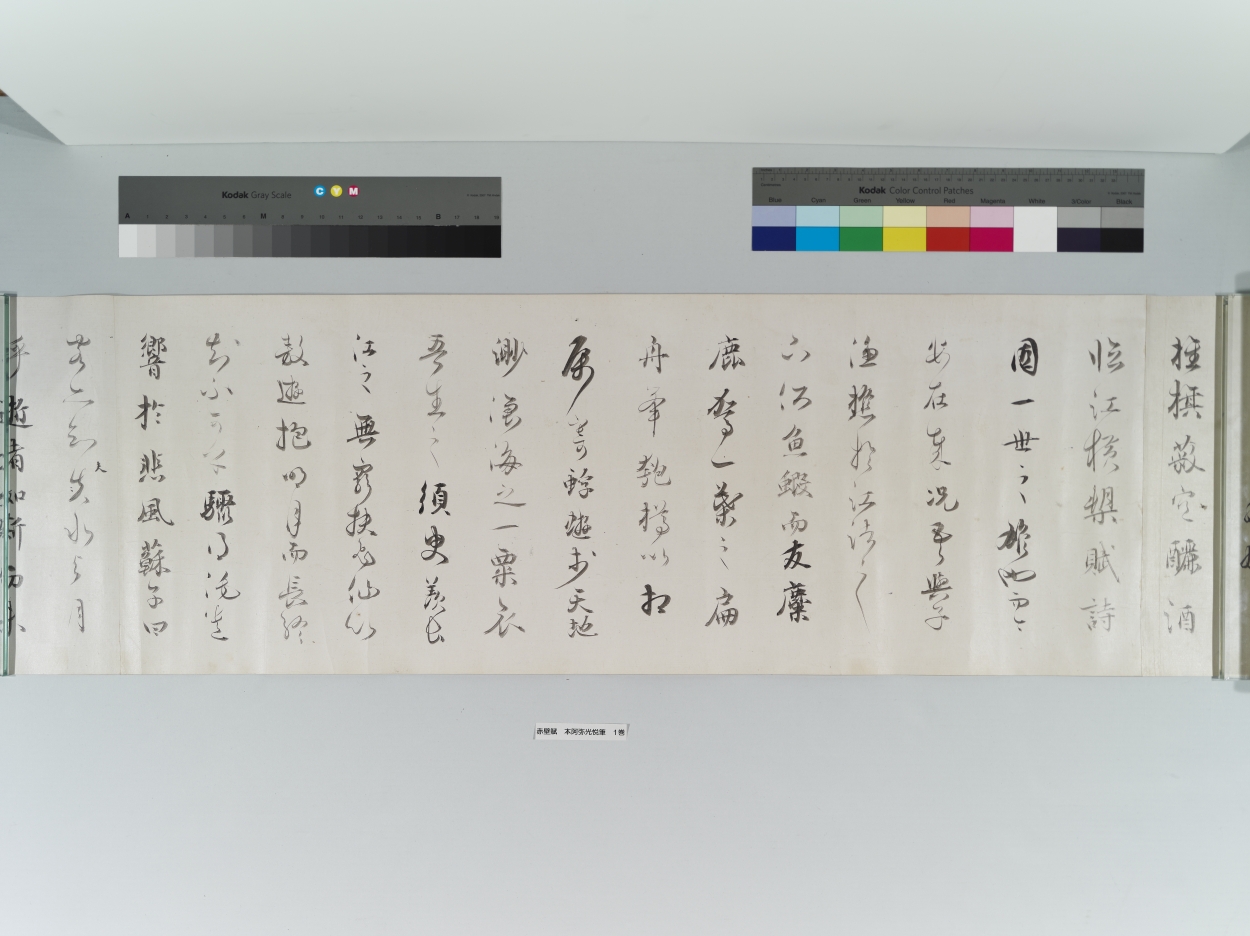 旌旗蔽空釃酒
臨江横槊賦詩
固一世之雄也而今
安在哉況吾與子
漁樵於江渚之
上侶魚鰕而友麋
鹿駕一葉之扁
舟挙匏樽以相
属寄蜉蝣於天地
渺滄海之一粟哀
吾生之須臾羨長
江之無窮挟飛仙以
遨遊抱明月而長終
知不可乎驟得託遺
響於悲風蘇子曰
客亦知夫水与月
乎逝者如斯而未
Kodak Gray Scale
C Y M
A 1 2 3 4 5 6 M 8 9 10 11 12 13 14 15 B 17 18 19
Kodak Color Control Patches
Blue Cyan Green Yellow Red Magenta White 3/Color Black
赤壁賦 本阿弥光悦筆 1巻